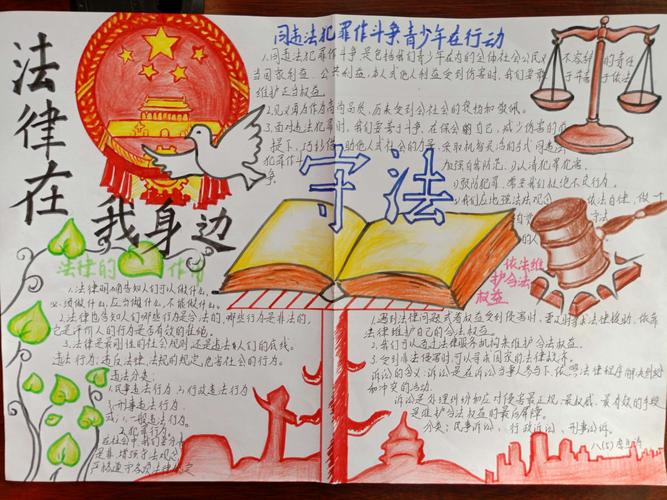 法律在我身边
同违法犯罪作斗争青少年在行动
1.同违法犯罪作斗争，是包括我们青少年在内的全体社会公民义不容辞的责任
当国家利益、公共利益、本人或他人利益受到伤害时，我们要敢于
维护正当权益
2.见义勇为作为
历来受到全社会的
3.面对违法犯罪时，我们要善于斗争，在保全自己，减少伤害的前
提下，巧妙
助他人或社会的力量，采取机智灵活的方式同违法
犯罪作斗争。
加强自我防范
认清犯罪危害
预防犯罪，需要我们杜绝不良行为。
依法自律，做一
守法
法律的作用
1.法律明确告知人们可以做什么，
必须做什么，应当做什么，不能做什么。
2.法律也告知人们哪些行为是合法的，哪些行为是非法的，
它是评价人的行为是否有效的准绳。
3.法律是最刚性的社会规则，还是违法
人们的底线。
违法行为：违反法律、法规的规定，危害社会的行为。
违法分类
民事违法行为
行政违法行为
刑事违法行为
一般违法行为
2.犯罪行为
在社会中我们要分清
是非，增强守法观念
严格遵守各项法律规定
依法维
护合法
权益
1.遇到法律问题或者权益受到侵害时，要及时寻求法律援助，依靠
法律维护自己的合法权益。
2.我们可以通过法律服务机构来维护合法权益。
3.受到非法侵害时可以寻求国家的法律救济。
诉讼的含义：诉讼是在诉讼当事人参与下，依照法律程序解决纠纷
和冲突的活动。
诉讼是处理纠纷和应对侵害最正规、最权威、最有效的手段
是维护合法权益的最后屏障。
分类：民事诉讼、行政诉讼、刑事诉讼。
八(5)